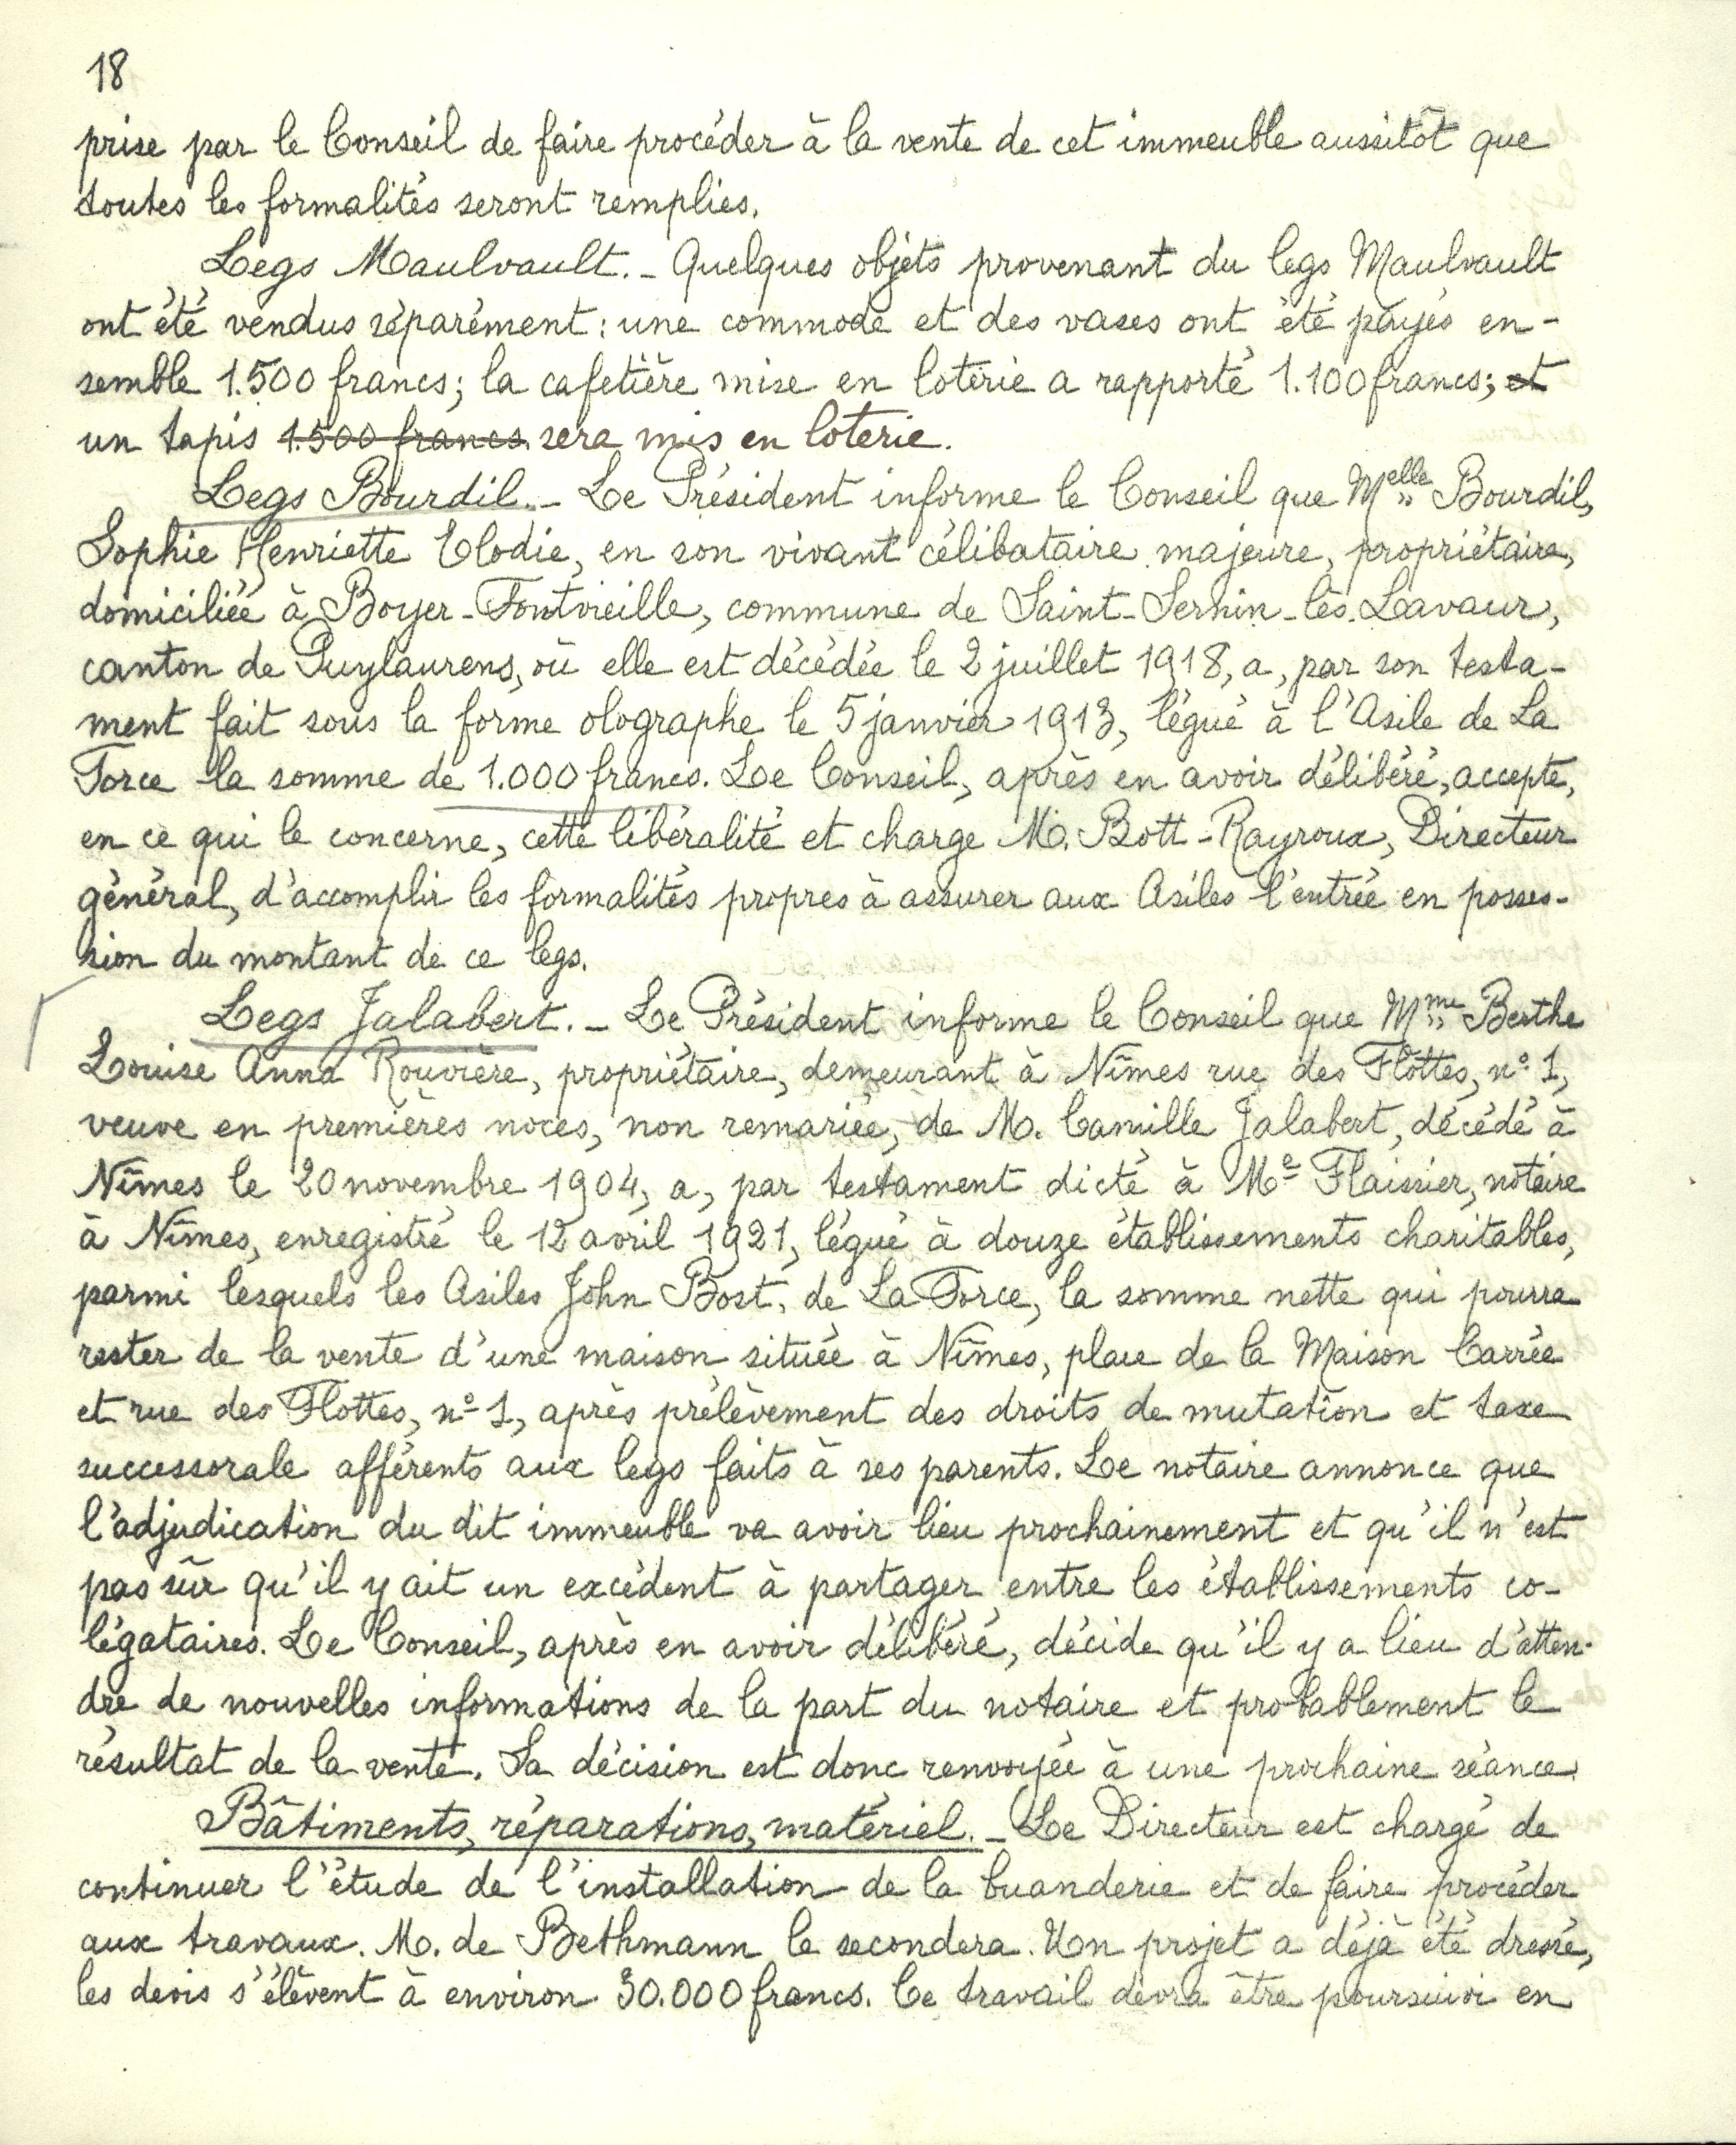 18
prise par le Conseil de faire procéder à la vente de cet immeuble aussitôt que
toutes les formalités seront remplies.
Legs Maulvault. - Quelques objets provenant du legs Maulvault
ont été vendus séparément : une commode et des vases ont été payés en-
semble 1.500 francs ; la cafetière mise en loterie a rapporté 1.100 francs ; et
un tapis 1.500 francs. sera mis en loterie.
Legs Bourdil. - Le Président informe le Conseil que Melle Bourdil,
Sophie Henriette Elodie, en son vivant célibataire majeure, propriétaire,
domiciliée à Boyer-Fontvieille, commune de Saint-Sernin-lès-Lavaur,
canton de Puylaurens, où elle est décédée le 2 juillet 1918, a, par son testa-
ment fait sous la forme olographe le 5 janvier 1913, légué à l'Asile de La
Force la somme de 1.000 francs. Le Conseil, après en avoir délibéré, accepte,
en ce qui le concerne, cette libéralité et charge M. Bott-Rayroux, Directeur
général, d'accomplir les formalités propres à assurer aux Asiles l'entrée en posses-
sion du montant de ce legs.
Legs Jalabert. - Le Président informe le Conseil que Mme Berthe
Louise Anna Rouvière, propriétaire, demeurant à Nîmes rue des Flottes, n° 1,
veuve en premières noces, non remariée, de M. Camille Jalabert, décédé à
Nîmes le 20 novembre 1904, a, par testament dicté à Me Flaissier, notaire
à Nîmes, enregistré le 12 avril 1921, légué à douze établissements charitables,
parmi lesquels les Asiles John Bost, de La Force, la somme nette qui pourra
rester de la vente d'une maison située à Nîmes, place de la Maison Carrée
et rue des Flottes, n° 1, après prélèvement des droits de mutation et taxe
successorale afférents aux legs faits à ses parents. Le notaire annonce que
l'adjudication du dit immeuble va avoir lieu prochainement et qu'il n'est
pas sûr qu'il y ait un excédent à partager entre les établissements co-
légataires. Le Conseil, après en avoir délibéré, décide qu'il y a lieu d'atten-
dre de nouvelles informations de la part du notaire et probablement le
résultat de la vente. Sa décision est donc renvoyée à une prochaine séance.
Bâtiments, réparations, matériel. - Le Directeur est chargé de
continuer l'étude de l'installation de la buanderie et de faire procéder
aux travaux. M. de Bethmann le secondera. Un projet a déjà été dressé,
les devis s'élèvent à environ 30.000 francs. Ce travail devra être poursuivi en